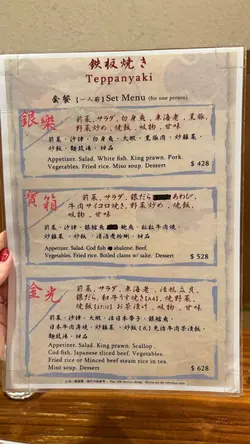 鉄板焼き
Teppanyaki
套餐【一人前】Set Menu (for one person)
銀樂
前菜、サラダ、白身魚、車海老、黒豚、
野菜炒め、焼飯、吸物、甘味
前菜・沙律・白身魚・大蝦・黑豚肉・炒雜菜・
炒飯・麵豉湯・甜品
Appetizer. Salad. White fish. King prawn. Pork.
Vegetables. Fried rice. Miso soup. Dessert
$ 428
寶箱
前菜、サラダ、銀だら あわび、
牛肉サイコロ焼き、野菜炒め、焼飯、
吸物、甘味
前菜・沙律・銀鱈魚 鮑魚・粒粒牛肉燒・
炒雜菜・炒飯・
Appetizer. Salad. Cod fish abalone. Beef.
Vegetables. Fried rice. Boiled clams w/ sake. Dessert
$ 528
金光
前菜、サラダ、車海老、活帆立貝、
銀だら、和牛うす焼き[A4]、焼野菜、
焼飯[又は]お茶漬け、吸物、甘味
前菜・沙律・大蝦・活日本帶子・銀鱈魚・
日本牛肉薄燒・炒雜菜・炒飯[或]免治牛肉茶漬飯・
麵豉湯・甜品
Appetizer. Salad. King prawn. Scallop
Cod fish. Japanese sliced beef. Vegetables.
Fried rice or Minced beef steam rice in tea.
Miso soup. Dessert
$ 628